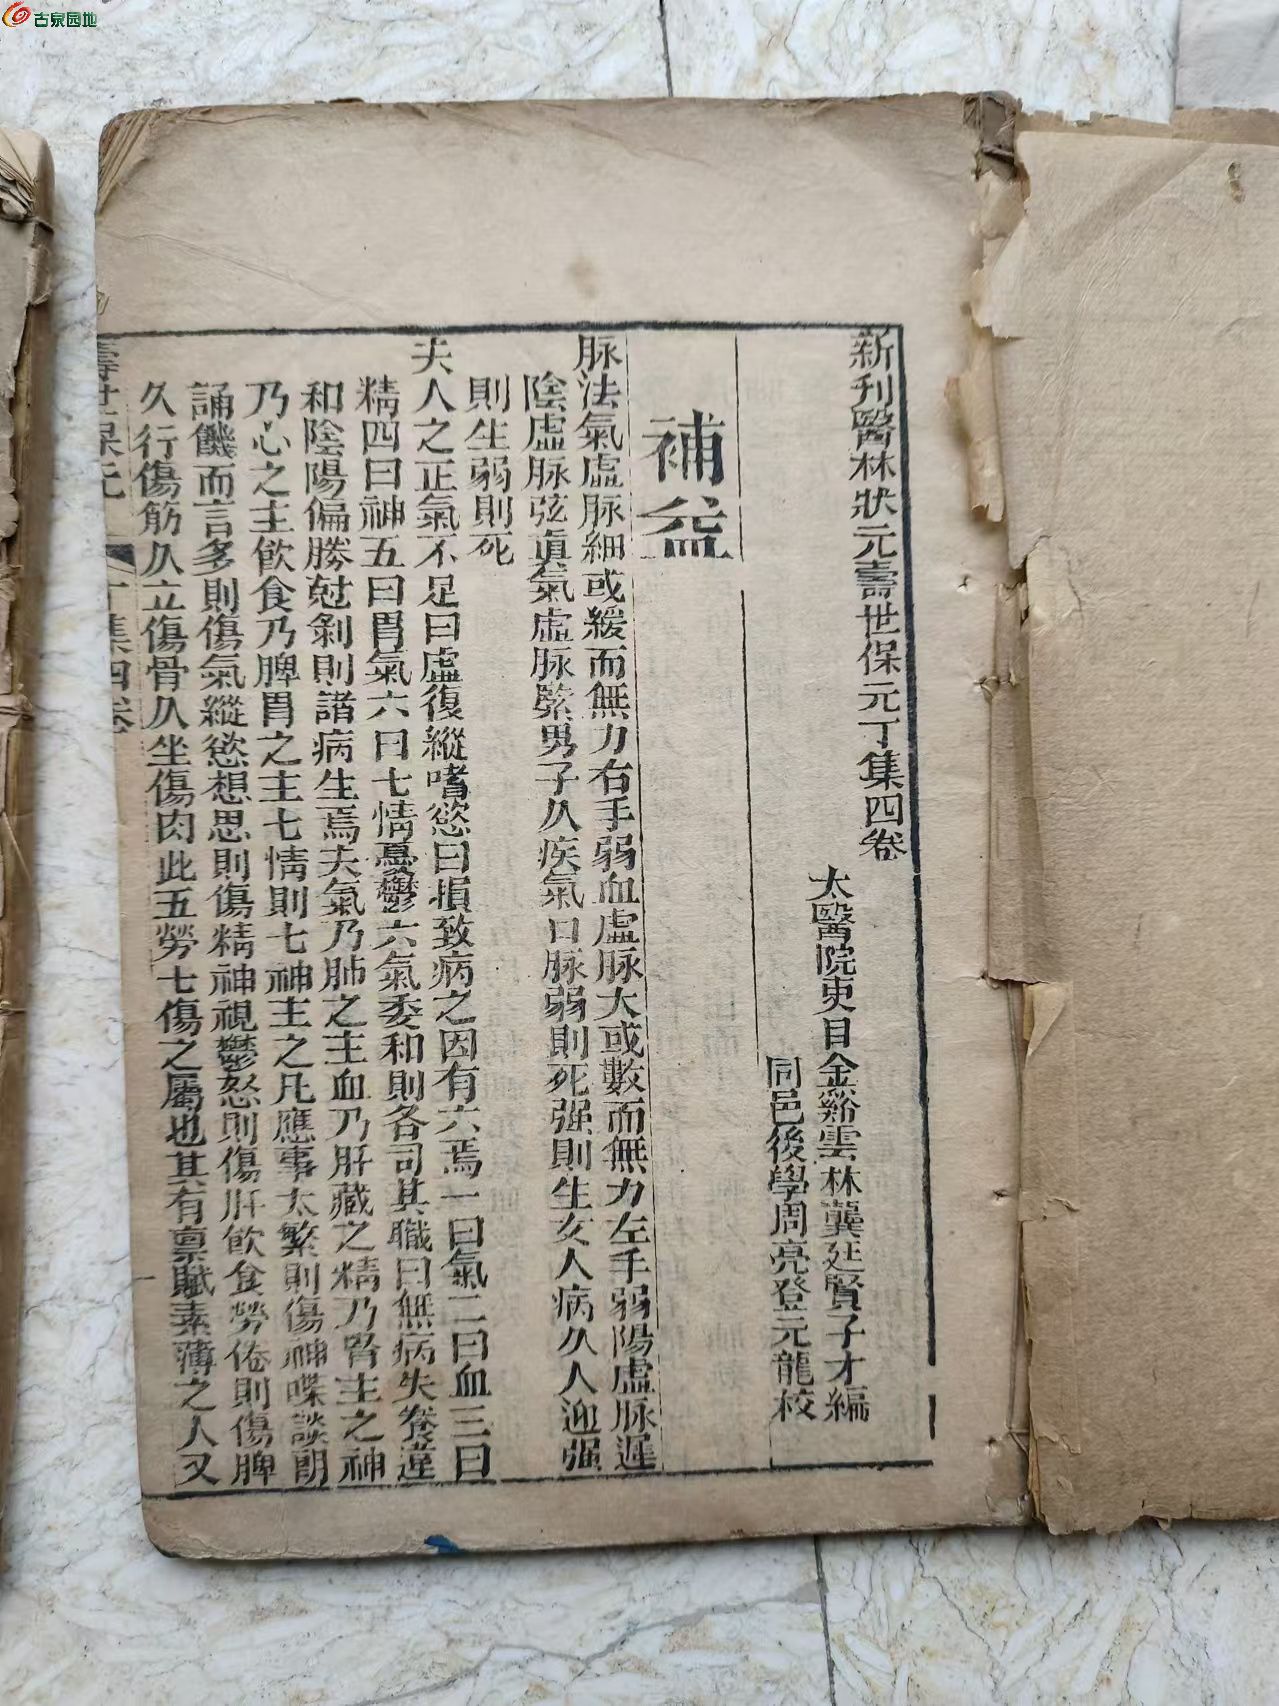 古泉园地
新刊醫林狀元壽世保元丁集四卷
太醫院吏目金谿雲林龔廷賢子才編
同邑後學周亮登元龍校
補益
脉法氣虛脉細或緩而無力右手弱血虛脉大或數而無力左手弱陽虛脉遲
陰虛脉弦眞氣虛脉緊男子久疾氣口脉弱則死强則生女人病久人迎强
則生弱則死
夫人之正氣不足曰虛復縱嗜慾曰損致病之因有六焉一曰氣二曰血三曰
精四曰神五曰胃氣六曰七情憂鬱六氣委和則各司其職曰無病失養違
和陰陽偏勝尅剝則諸病生焉夫氣乃肺之主血乃肝藏之精乃腎主之神
乃心之主飲食乃脾胃之主七情則七神主之凡應事太繁則傷神喋談朗
誦饑而言多則傷氣縱慾想思則傷精神視鬱怒則傷肝飲食勞倦則傷脾
久行傷筋久立傷骨久坐傷肉此五勞七傷之屬也其有禀賦素薄之人又
壽世保元 丁集四卷 一